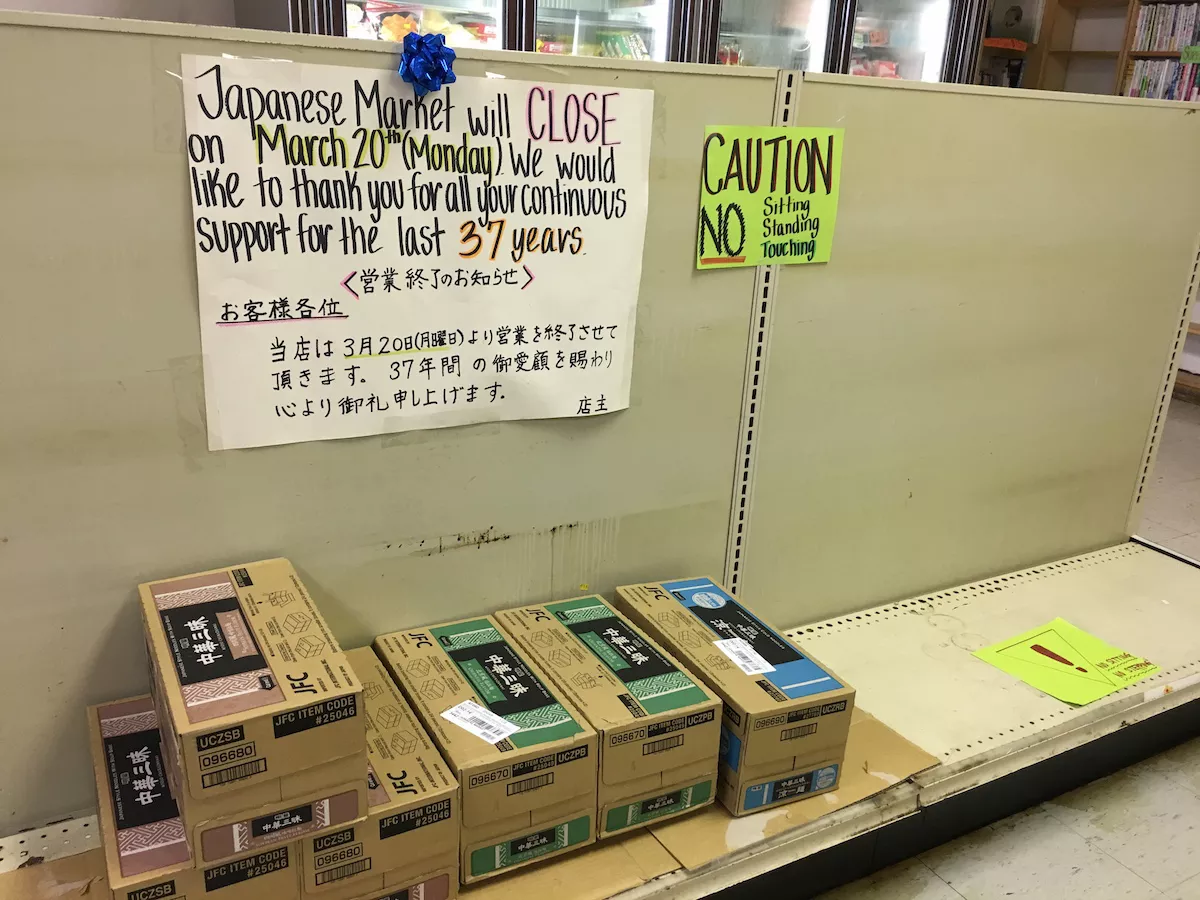 Japanese Market will CLOSE
on March 20th (Monday). We would
like to thank you for all your continuous
support for the last 37 years.
<営業終了のお知らせ>
お客様各位
当店は3月20日(月曜日)より営業を終了させて
頂きます。37年間の御愛顧を賜わり
心より御礼申し上げます。
店主
CAUTION
NO Sitting
Standing
Touching
!
NO SITTING
中華三昧
JFC
JFC ITEM CODE
#25046
UCZSB
096680
中華三昧
中華三昧
JFC ITEM CODE
#25046
UCZSB
JFC
JFC ITEM CODE
#25046
UCZSB
096680
JFC
中華三昧
096670
UCZPB
中華三昧
JFC
中華三昧
096670
UCZPB
中華三昧
JFC
096690
UCZRB
中華三昧